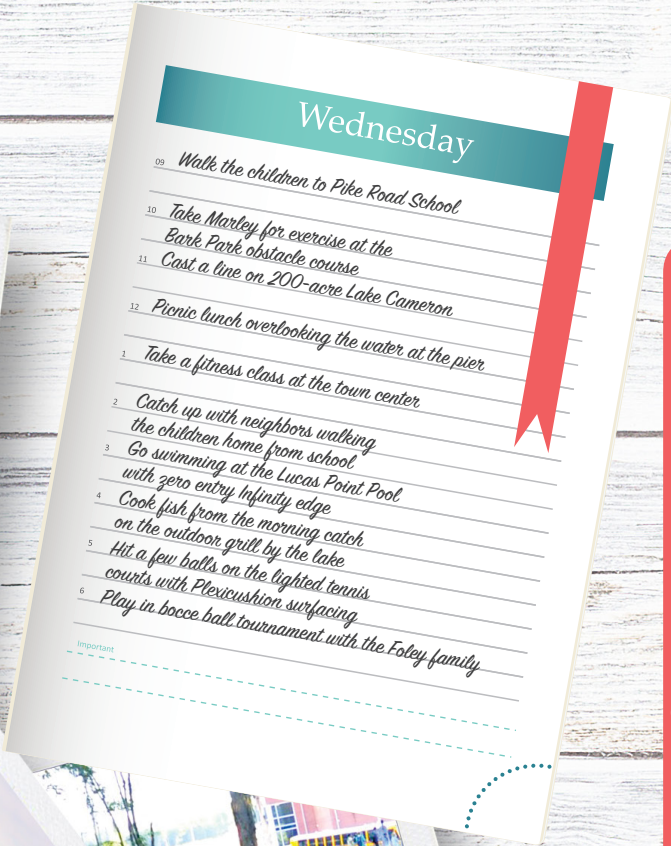 Wednesday
09 Walk the children to Pike Road School
10 Take Marley for exercise at the
Bark Park obstacle course
11 Cast a line on 200-acre Lake Cameron
12 Picnic lunch overlooking the water at the pier
1 Take a fitness class at the town center
2 Catch up with neighbors walking
the children home from school
3 Go swimming at the Lucas Point Pool
with zero entry Infinity edge
4 Cook fish from the morning catch
on the outdoor grill by the lake
5 Hit a few balls on the lighted tennis
courts with Plexicushion surfacing
6 Play in bocce ball tournament with the Foley family
Important